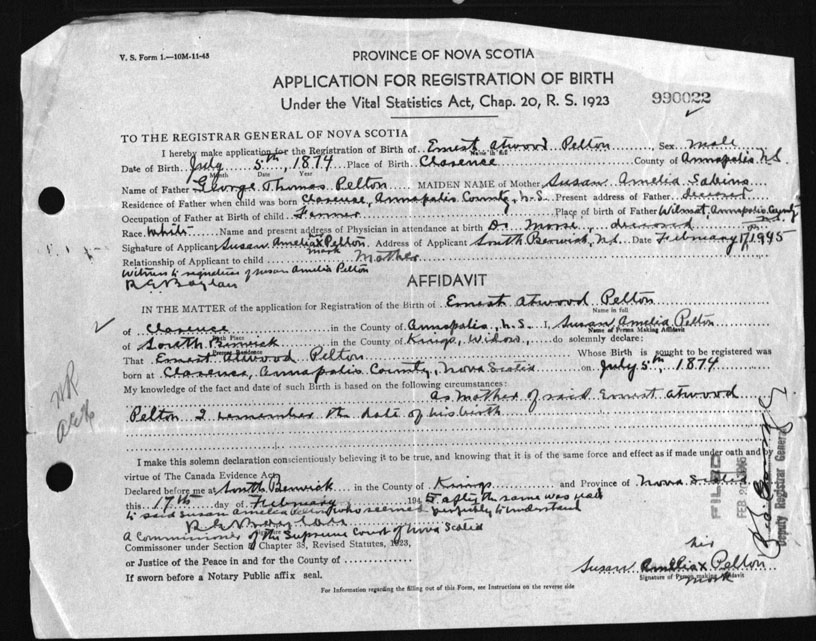 V. S. Form 1.—10M-11-43
PROVINCE OF NOVA SCOTIA
APPLICATION FOR REGISTRATION OF BIRTH
Under the Vital Statistics Act, Chap. 20, R. S. 1923
990022
TO THE REGISTRAR GENERAL OF NOVA SCOTIA
I hereby make application for the Registration of Birth of Ernest Atwood Pelton, Sex Male
Name in full
Date of Birth July 5th, 1874 Place of Birth Clarence County of Annapolis N.S.
Month Date Year
Name of Father George Thomas Pelton MAIDEN NAME of Mother Susan Amelia Sabins
Residence of Father when child was born Clarence, Annapolis County, N.S. Present address of Father deceased
Occupation of Father at Birth of child Farmer Place of birth of Father Wilmot, Annapolis County
Race White Name and present address of Physician in attendance at birth Dr. Morse, deceased
Signature of Applicant Susan Amelia X Pelton Address of Applicant South Berwick, N.S. Date February 17 1945
mark
Relationship of Applicant to child Mother
Witness to signature of Susan Amelia Pelton
AFFIDAVIT
IN THE MATTER of the application for Registration of the Birth of Ernest Atwood Pelton
Name in full
of Clarence in the County of Annapolis, N.S. I, Susan Amelia Pelton
Birth Place Name of Person Making Affidavit
of South Berwick in the County of Kings, Widow, do solemnly declare:
Present Residence
That Ernest Atwood Pelton Whose Birth is sought to be registered was
born at Clarence, Annapolis County, Nova Scotia on July 5th, 1874
My knowledge of the fact and date of such Birth is based on the following circumstances:
as mother of said Ernest Atwood
Pelton I remember the date of his birth
I make this solemn declaration conscientiously believing it to be true, and knowing that it is of the same force and effect as if made under oath and by
virtue of The Canada Evidence Act
Declared before me at South Berwick in the County of Kings and Province of Nova Scotia
this 17th day of February 1945 after the same was read
to said Susan Amelia Pelton who seemed perfectly to understand
A Commissioner of the Supreme Court of Nova Scotia
Commissioner under Section Chapter 38, Revised Statutes, 1923,
or Justice of the Peace in and for the County of
If sworn before a Notary Public affix seal.
her
Susan Amelia X Pelton
Signature of Person making Affidavit
mark
For Information regarding the filling out of this Form, see Instructions on the reverse side
FILED
FEB
Deputy Registrar General